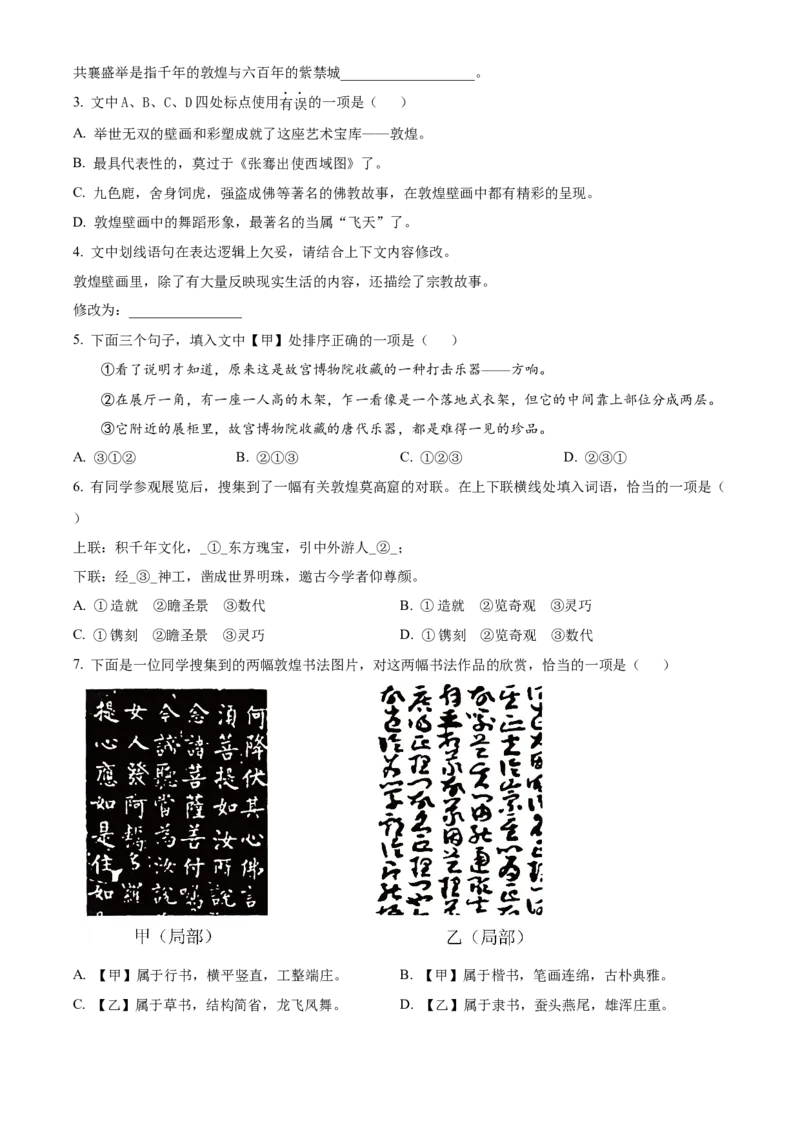 共襄盛举是指千年的敦煌与六百年的紫禁城___________________。
3. 文中A、B、C、D四处标点使用有误的一项是（　　）
A. 举世无双的壁画和彩塑成就了这座艺术宝库——敦煌。
B. 最具代表性的，莫过于《张骞出使西域图》了。
C. 九色鹿，舍身饲虎，强盗成佛等著名的佛教故事，在敦煌壁画中都有精彩的呈现。
D. 敦煌壁画中的舞蹈形象，最著名的当属“飞天”了。
4. 文中划线语句在表达逻辑上欠妥，请结合上下文内容修改。
敦煌壁画里，除了有大量反映现实生活的内容，还描绘了宗教故事。
修改为：________________
5. 下面三个句子，填入文中【甲】处排序正确的一项是（　　）
①看了说明才知道，原来这是故宫博物院收藏的一种打击乐器——方响。
②在展厅一角，有一座一人高的木架，乍一看像是一个落地式衣架，但它的中间靠上部位分成两层。
③它附近的展柜里，故宫博物院收藏的唐代乐器，都是难得一见的珍品。
A. ③①② B. ②①③ C. ①②③ D. ②③①
6. 有同学参观展览后，搜集到了一幅有关敦煌莫高窟的对联。在上下联横线处填入词语，恰当的一项是（
）
上联：积千年文化，_①_东方瑰宝，引中外游人_②_；
下联：经_③_神工，凿成世界明珠，邀古今学者仰尊颜。
A. ①造就　②瞻圣景　③数代 B. ①造就　②览奇观　③灵巧
C. ①镌刻　②瞻圣景　③灵巧 D. ①镌刻　②览奇观　③数代
7. 下面是一位同学搜集到的两幅敦煌书法图片，对这两幅书法作品的欣赏，恰当的一项是（　　）
何降伏其心佛言
須菩提如汝所說
念諸菩薩善付囑
令諦聽當為汝說
女人發阿耨多羅
提心應如是住如
甲（局部） 乙（局部）
A. 【甲】属于行书，横平竖直，工整端庄。 B. 【甲】属于楷书，笔画连绵，古朴典雅。
C. 【乙】属于草书，结构简省，龙飞凤舞。 D. 【乙】属于隶书，蚕头燕尾，雄浑庄重。